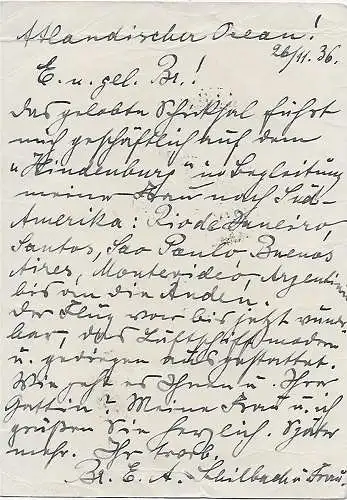 Atlandischer Ocean!
26/11. 36.
E. u. gel. Br.!
Das gelobte Schicksal führt
mich geschäftlich auf dem
"Hindenburg" in Begleitung
meiner Frau nach Süd-
Amerika: Rio de Janeiro,
Santos, Sao Paulo-Buenos
Aires, Montevideo, Argentinien
bis an die Anden.
Der Flug war bis jetzt wunder
bar, das Luftschiff modern
u. gediegen ausgestattet.
Wie geht es Ihnen u. Ihrer
Gattin? Meine Frau u. ich
grüßen Sie herzlich. Später
mehr. Ihr treuverb.
Br. E. A. Schilbach u. Frau.